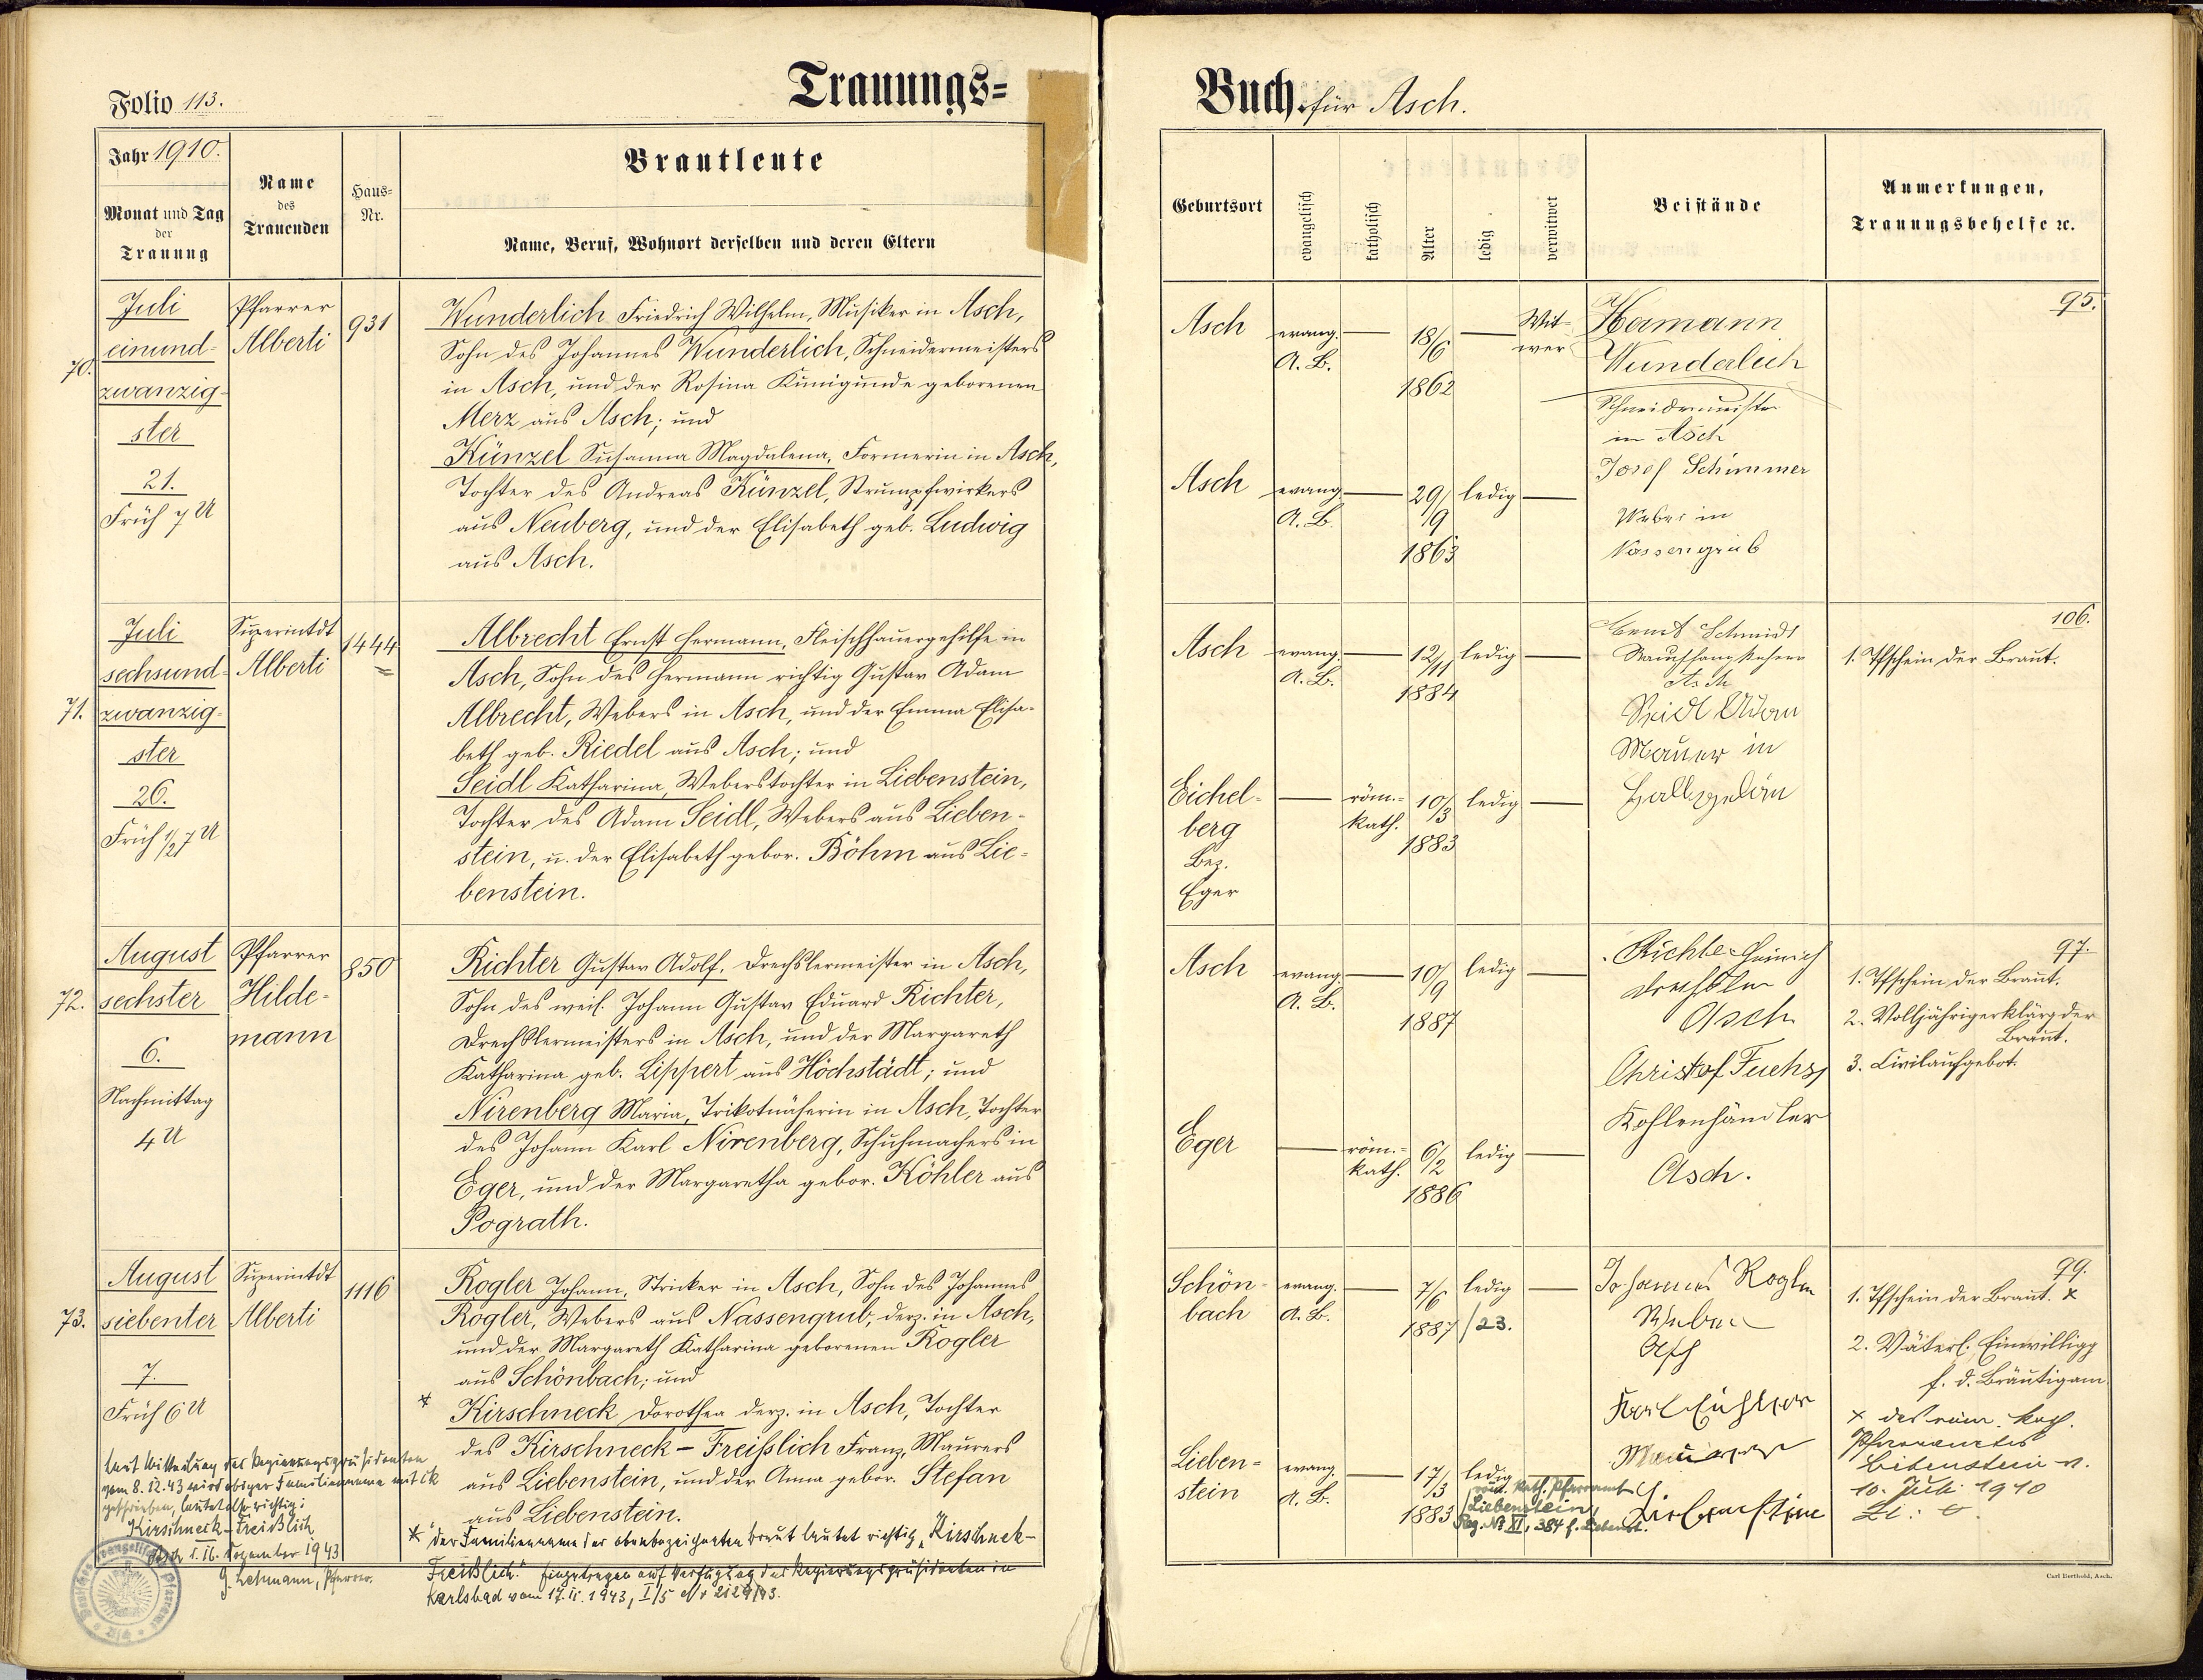 Folio 113.
Trauungs=
Jahr 1910.
Monat und Tag
der
Trauung
Name
des
Trauenden
Haus=
Nr.
Brautleute
Name, Beruf, Wohnort derselben und deren Eltern
70.
Juli
einund-
zwanzig-
ster
21.
Früh 7 U
Pfarrer
Alberti
931
Wunderlich Friedrich Wilhelm, Musiker in Asch,
Sohn des Johannes Wunderlich, Schneidermeisters
in Asch, und der Rosina Kunigunde geborenen
Merz aus Asch; und
Künzel Susanna Magdalena, Formerin in Asch,
Tochter des Andreas Künzel, Strumpfwirkers
aus Neuberg, und der Elisabeth geb. Ludwig
aus Asch.
71.
Juli
sechsund-
zwanzig-
ster
26.
Früh 1/2 7 U
Superintdt
Alberti
1444
Albrecht Ernst Hermann, Fleischhauergehilfe in
Asch, Sohn des Hermann richtig Gustav Adam
Albrecht, Webers in Asch, und der Emma Elisa-
beth geb. Riedel aus Asch; und
Seidl Katharina, Weberstochter in Liebenstein,
Tochter des Adam Seidl, Webers aus Lieben-
stein, u. der Elisabeth gebor. Böhm aus Lie-
benstein.
72.
August
sechster
6.
Nachmittag
4 U
Pfarrer
Hilde-
mann
850
Richter Gustav Adolf, Drechslermeister in Asch,
Sohn des weil. Johann Gustav Eduard Richter,
Drechslermeisters in Asch, und der Margareth
Katharina geb. Lippert aus Höchstädt; und
Nirenberg Maria, Trikotnäherin in Asch, Tochter
des Johann Karl Nirenberg, Schuhmachers in
Eger, und der Margaretha gebor. Köhler aus
Pograth.
73.
August
siebenter
7.
Früh 6 U
Superintdt
Alberti
1116
Rogler Johann, Stricker in Asch, Sohn des Johannes
Rogler, Webers aus Nassengrub, derz. in Asch,
und der Margareth Katharina geborenen Rogler
aus Schönbach; und
* Kirschneck Dorothea derz. in Asch, Tochter
des Kirschneck - Freißlich Franz, Maurers
aus Liebenstein, und der Anna gebor. Stefan
aus Liebenstein.
* Der Familienname der obenbezeichneten Braut lautet richtig „Kirschnek-
Freißlich." Eingetragen auf Verfügung des Regierungspräsidenten in
Karlsbad vom 17.11.1943, I/5 Nr 2129/43.
Laut Mitteilung des Regierungspräsidenten
vom 8.12.43 wird obiger Familienname mit ck
geschrieben, lautet also richtig:
Kirschneck-Freißlich
Asch d. 16. Dezember 1943
G. Lehmann, Pfarrer.
Buch für Asch.
Geburtsort
evangelisch
katholisch
Alter
ledig
verwitwet
Beistände
Anmerkungen,
Trauungsbehelfe ꝛc.
Asch
evang.
A. B.
18/6
1862
Wit-
wer
Hermann
Wunderlich
Schneidermeister
in Asch
95.
Asch
evang.
A. B.
29/9
1863
ledig
Josef Schimmer
Weber in
Nassengrub
Asch
evang.
A. B.
12/11
1884
ledig
Schmidt
Asch
106.
1. Tfschein der Braut.
Eichel-
berg
Bez.
Eger
röm.-
kath.
10/3
1883
ledig
Seidl Adam
Mauer in
Asch
evang.
A. B.
10/9
1887
ledig
Richter Heinrich
Drechsler
Asch
97.
1. Tfschein der Braut.
2. Volljährigerklärg der
Braut.
3. Civilaufgebot.
Eger
röm.-
kath.
6/2
1886
ledig
Christof Fuchs,
Kohlenhändler
Asch.
Schön-
bach
evang.
A. B.
7/6
1887
ledig
/23.
Johannes Rogler
Weber
Asch
99.
1. Tfschein der Braut. x
2. Väterl. Einwilligg
f. d. Bräutigam
x des röm. kath.
Pfarramtes
Liebenstein v.
10. Juli 1910
Lieben-
stein
evang.
A. B.
17/3
1883
ledig
röm. kath. Pfarramt
Liebenstein,
Reg. No XI, 384 f. Liebenst.
Maurer
Liebenstein
Carl Berthold, Asch.